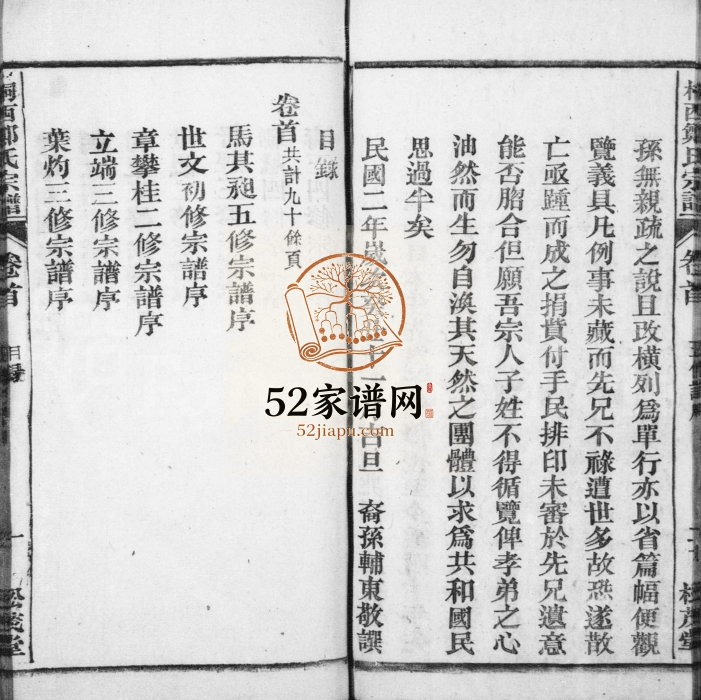 孫無親疏之說且改橫列爲單行亦以省篇幅便觀
覽義具凡例事未蕆而先兄不祿遭世多故恐遂散
亡亟踵而成之捐貲付手民排印未審於先兄遺意
能否脗合但願吾宗人子姓不得循覽俾孝弟之心
油然而生勿自渙其天然之團體以求爲共和國民
思過半矣
民國二年歲 十一 旦 裔孫輔東敬譔
桐西鄭氏宗譜 卷首 松茂堂
目錄
卷首共計九十餘頁
馬其昶五修宗譜序
世文初修宗譜序
章攀桂二修宗譜序
立端三修宗譜序
葉灼三修宗譜序
桐西鄭氏宗譜 卷首 目錄 一 松茂堂
52家谱网
52jiapu.com